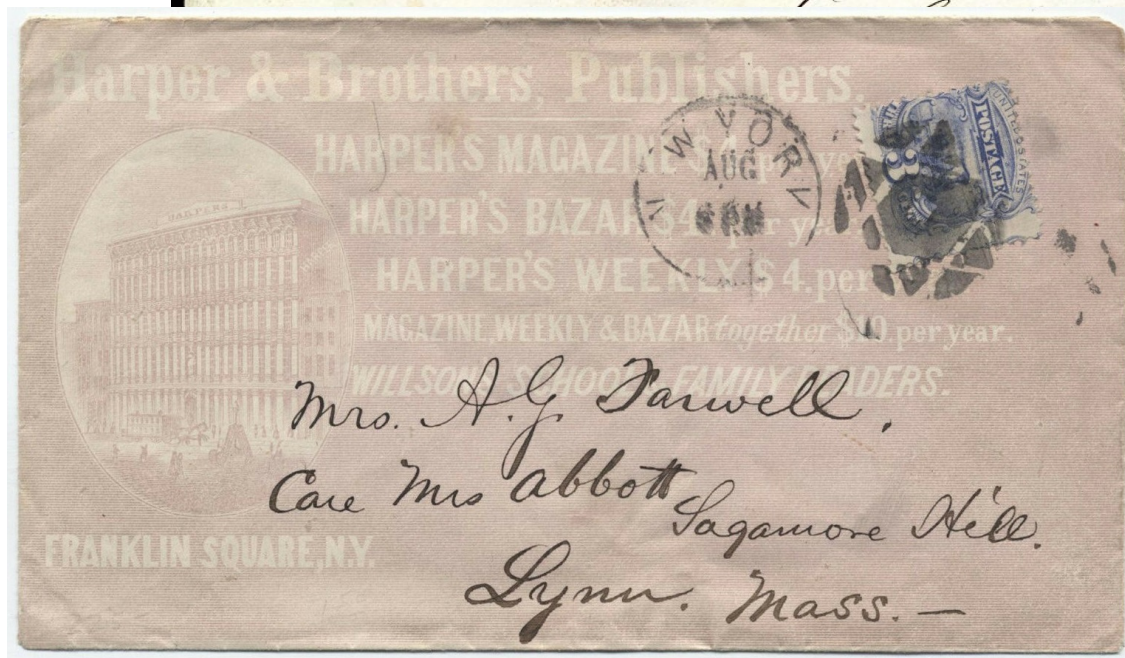 Harper & Brothers, Publishers.
HARPER'S MAGAZINE $4. per year
HARPER'S BAZAR $4. per year
HARPER'S WEEKLY $4. per
MAGAZINE, WEEKLY & BAZAR together $10 per year.
WILLSON'S SCHOOL & FAMILY READERS.
HARPER'S
FRANKLIN SQUARE, N.Y.
NEW YORK
AUG
UNITED STATES
POSTAGE
3
Mrs. A. G. Farwell,
Care Mrs Abbott
Sagamore Hill.
Lynn. Mass. —